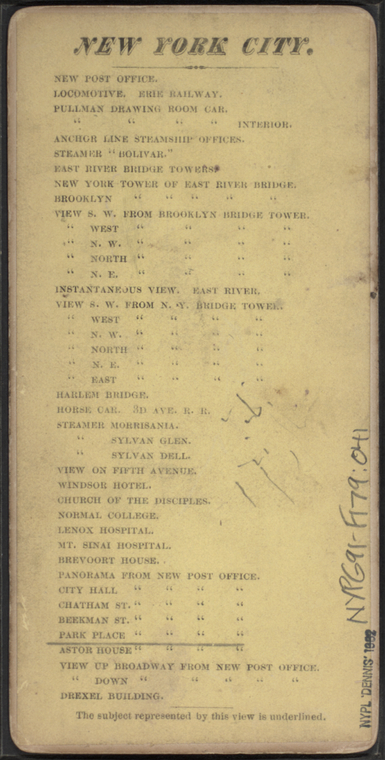 NEW YORK CITY.
NEW POST OFFICE.
LOCOMOTIVE. ERIE RAILWAY.
PULLMAN DRAWING ROOM CAR.
“ “ “ “ INTERIOR.
ANCHOR LINE STEAMSHIP OFFICES.
STEAMER “BOLIVAR.”
EAST RIVER BRIDGE TOWERS.
NEW YORK TOWER OF EAST RIVER BRIDGE.
BROOKLYN “ “ “ “ “
VIEW S. W. FROM BROOKLYN BRIDGE TOWER.
“ WEST “ “ “ “
“ N. W. “ “ “ “
“ NORTH “ “ “ “
“ N. E. “ “ “ “
INSTANTANEOUS VIEW. EAST RIVER.
VIEW S. W. FROM N. Y. BRIDGE TOWER.
“ WEST “ “ “ “
“ N. W. “ “ “ “
“ NORTH “ “ “ “
“ N. E. “ “ “ “
“ EAST “ “ “ “
HARLEM BRIDGE.
HORSE CAR. 3D AVE. R. R.
STEAMER MORRISANIA.
“ SYLVAN GLEN.
“ SYLVAN DELL.
VIEW ON FIFTH AVENUE.
WINDSOR HOTEL.
CHURCH OF THE DISCIPLES.
NORMAL COLLEGE.
LENOX HOSPITAL.
MT. SINAI HOSPITAL.
BREVOORT HOUSE.
PANORAMA FROM NEW POST OFFICE.
CITY HALL “ “ “ “
CHATHAM ST. “ “ “ “
BEEKMAN ST. “ “ “ “
PARK PLACE “ “ “ “
ASTOR HOUSE “ “ “ “
VIEW UP BROADWAY FROM NEW POST OFFICE.
“ DOWN “ “ “ “ “
DREXEL BUILDING.
The subject represented by this view is underlined.
NYPG91-F179:041
NYPL 'DENNIS' 1992